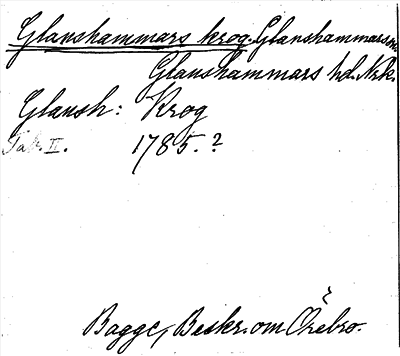 Glanshammars krog. Glanshammars sn.
Glanshammars hd. Nrk.
Glansh: Krog
Tab. II. 1785.?
Bagge, Beskr. om Örebro.